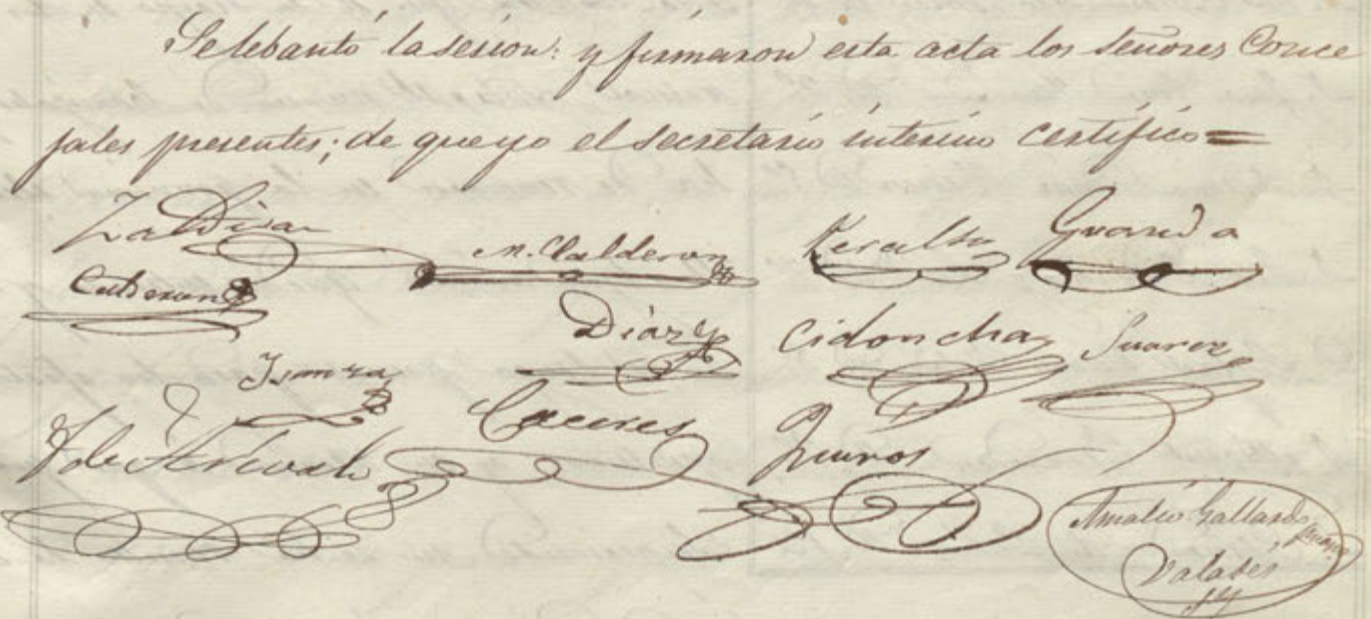 Se lebantó la sesion: y firmaron esta acta los señores Conce
jales presentes; de que yo el secretario interino certifico=
Zaldivar M. Calderon Peralta Granda
Calderon Diaz Cidoncha Suarez
Cáceres Quiros
Amalio Gallardo
Valadés